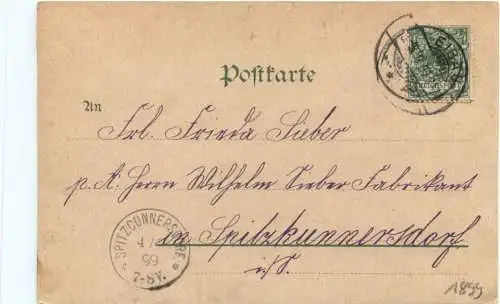 Postkarte
An
Frl. Frieda Sieber
p. A. Herrn Wilhelm Sieber Fabrikant
in Spitzkunnersdorf
i/S.
SPITZCUNNERSDORF
4/
99
7-8V.
1899